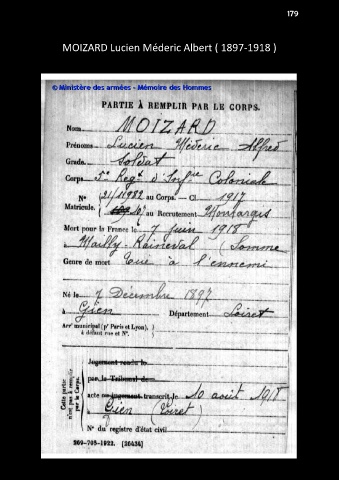 179
MOIZARD Lucien Méderic Albert ( 1897-1918 )
© Ministère des armées - Mémoire des Hommes
PARTIE À REMPLIR PAR LE CORPS.
Nom MOIZARD
Prénoms Lucien Médéric Alfred
Grade Soldat
Corps 5e Regt d'Infrie Coloniale
N° 21/11982 au Corps. — Cl. 1917
Matricule. au Recrutement Montargis
Mort pour la France le 7 juin 1918
à Mailly-Raineval (Somme
Genre de mort Tué à l'ennemi
Né le 7 Décembre 1897
à Gien Département Loiret
Arrt municipal (pr Paris et Lyon),
à défaut rue et N°.
Cette partie
n'est pas à remplir
par le Corps.
Jugement rendu le
par le Tribunal de
acte ou jugement transcrit le 10 août 1918
à Gien (Loiret)
N° du registre d'état civil
269-708-1922. [26434]